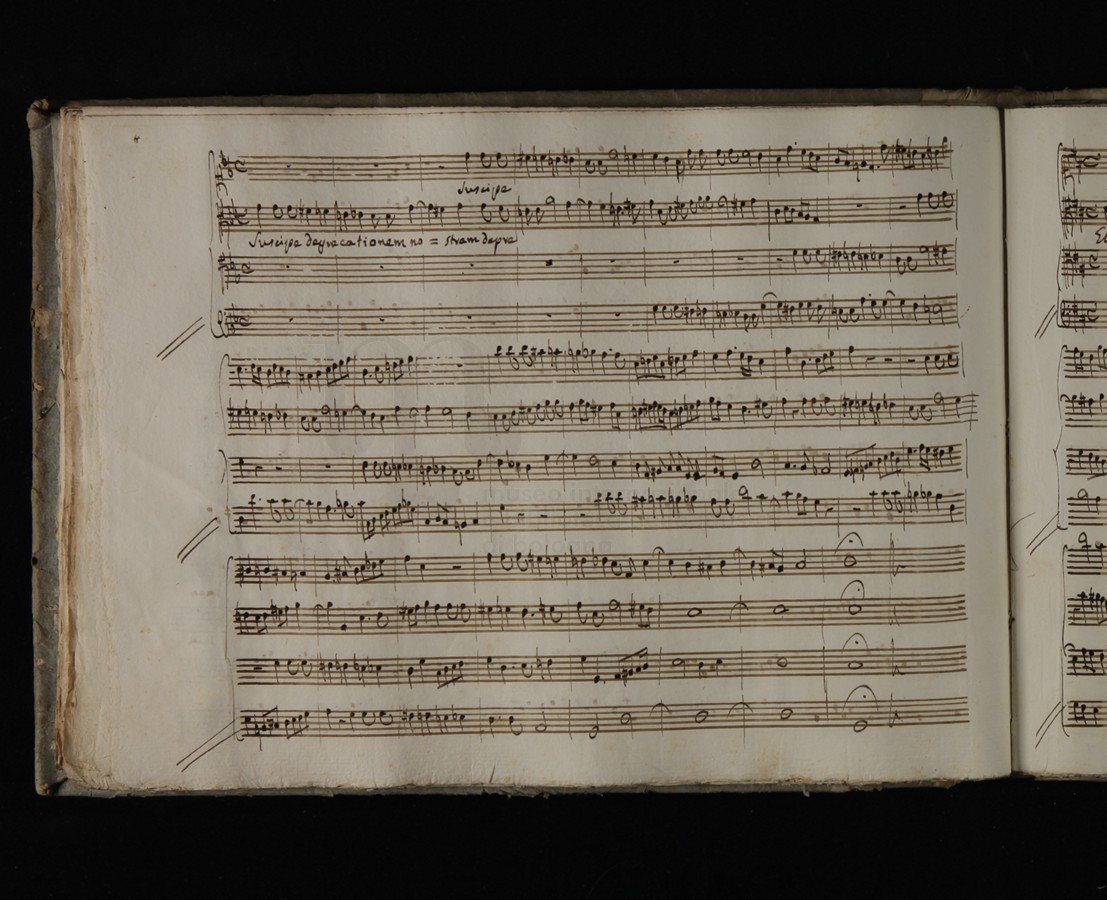 Suscipe
Suscipe deprecationem no = stram depre
museo in
di bologna